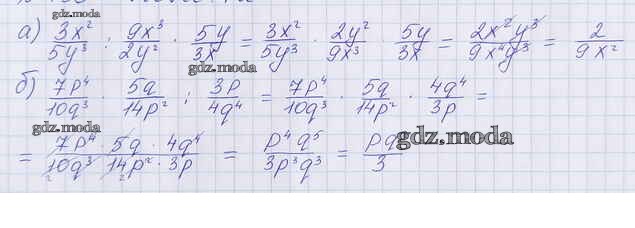 gdz.moda
а) 3x²/5y³ : 9x³/2y² · 5y/3x = 3x²/5y³ · 2y²/9x³ · 5y/3x = 2x²y³/9x⁴y³ = 2/9x²
gdz.moda
б) 7p⁴/10q³ · 5q/14p² : 3p/4q⁴ = 7p⁴/10q³ · 5q/14p² · 4q⁴/3p =
gdz.moda gdz.moda
= 7p⁴ · 5q · 4q⁴/10q³ · 14p² · 3p = p⁴q⁵/3p³q³ = pq/3